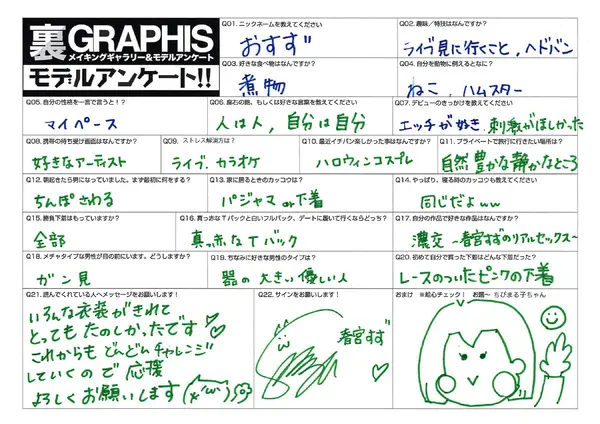 裏GRAPHIS
メイキングギャラリー&モデルアンケート
モデルアンケート!!
Q01. ニックネームを教えてください
おすず
Q02. 趣味/特技はなんですか?
ライブ見に行くこと、ヘドバン
Q03. 好きな食べ物はなんですか?
煮物
Q04. 自分を動物に例えるとなに?
ねこ、ハムスター
Q05. 自分の性格を一言で言うと!?
マイペース
Q06. 座右の銘、もしくは好きな言葉を教えてください
人は人,自分は自分
Q07. デビューのきっかけを教えてください
エッチが好き.刺激がほしかった
Q08. 携帯の待ち受け画面はなんですか?
好きなアーティスト
Q09. ストレス解消方は?
ライブ.カラオケ
Q10. 最近イチバン楽しかった事はなんですか?
ハロウィンコスプレ
Q11. プライベートで旅行に行きたい場所は?
自然豊かな静かなところ
Q12. 朝起きたら男になっていました。まず最初に何をする?
ちんぽさわる
Q13. 家に居るときのカッコウは?
パジャマor下着
Q14. やっぱり、寝る時のカッコウも教えてください
同じだよww
Q15. 勝負下着はもっていますか?
全部
Q16. 真っ赤なTバックと白いフルバック、デートに履いて行くならどっち?
真っ赤なTバック
Q17. 自分の作品で好きな作品はなんですか?
濃交 〜春宮すずのリアルセックス〜
Q18. メチャタイプな男性が目の前にいます。どうしますか?
ガン見
Q19. ちなみに好きな男性のタイプは?
器の大きい優しい人
Q20. 初めて自分で買った下着はどんな下着だった?
レースのついたピンクの下着
Q21. 読んでくれている人へメッセージをお願いします!
いろんな衣装がきれて
とってもたのしかったです
これからもどんどんチャレンジ
していくので応援
よろしくお願いします
Q22. サインをお願いします!
春宮すず
おまけ ※絵心チェック! お題〜 ちびまる子ちゃん